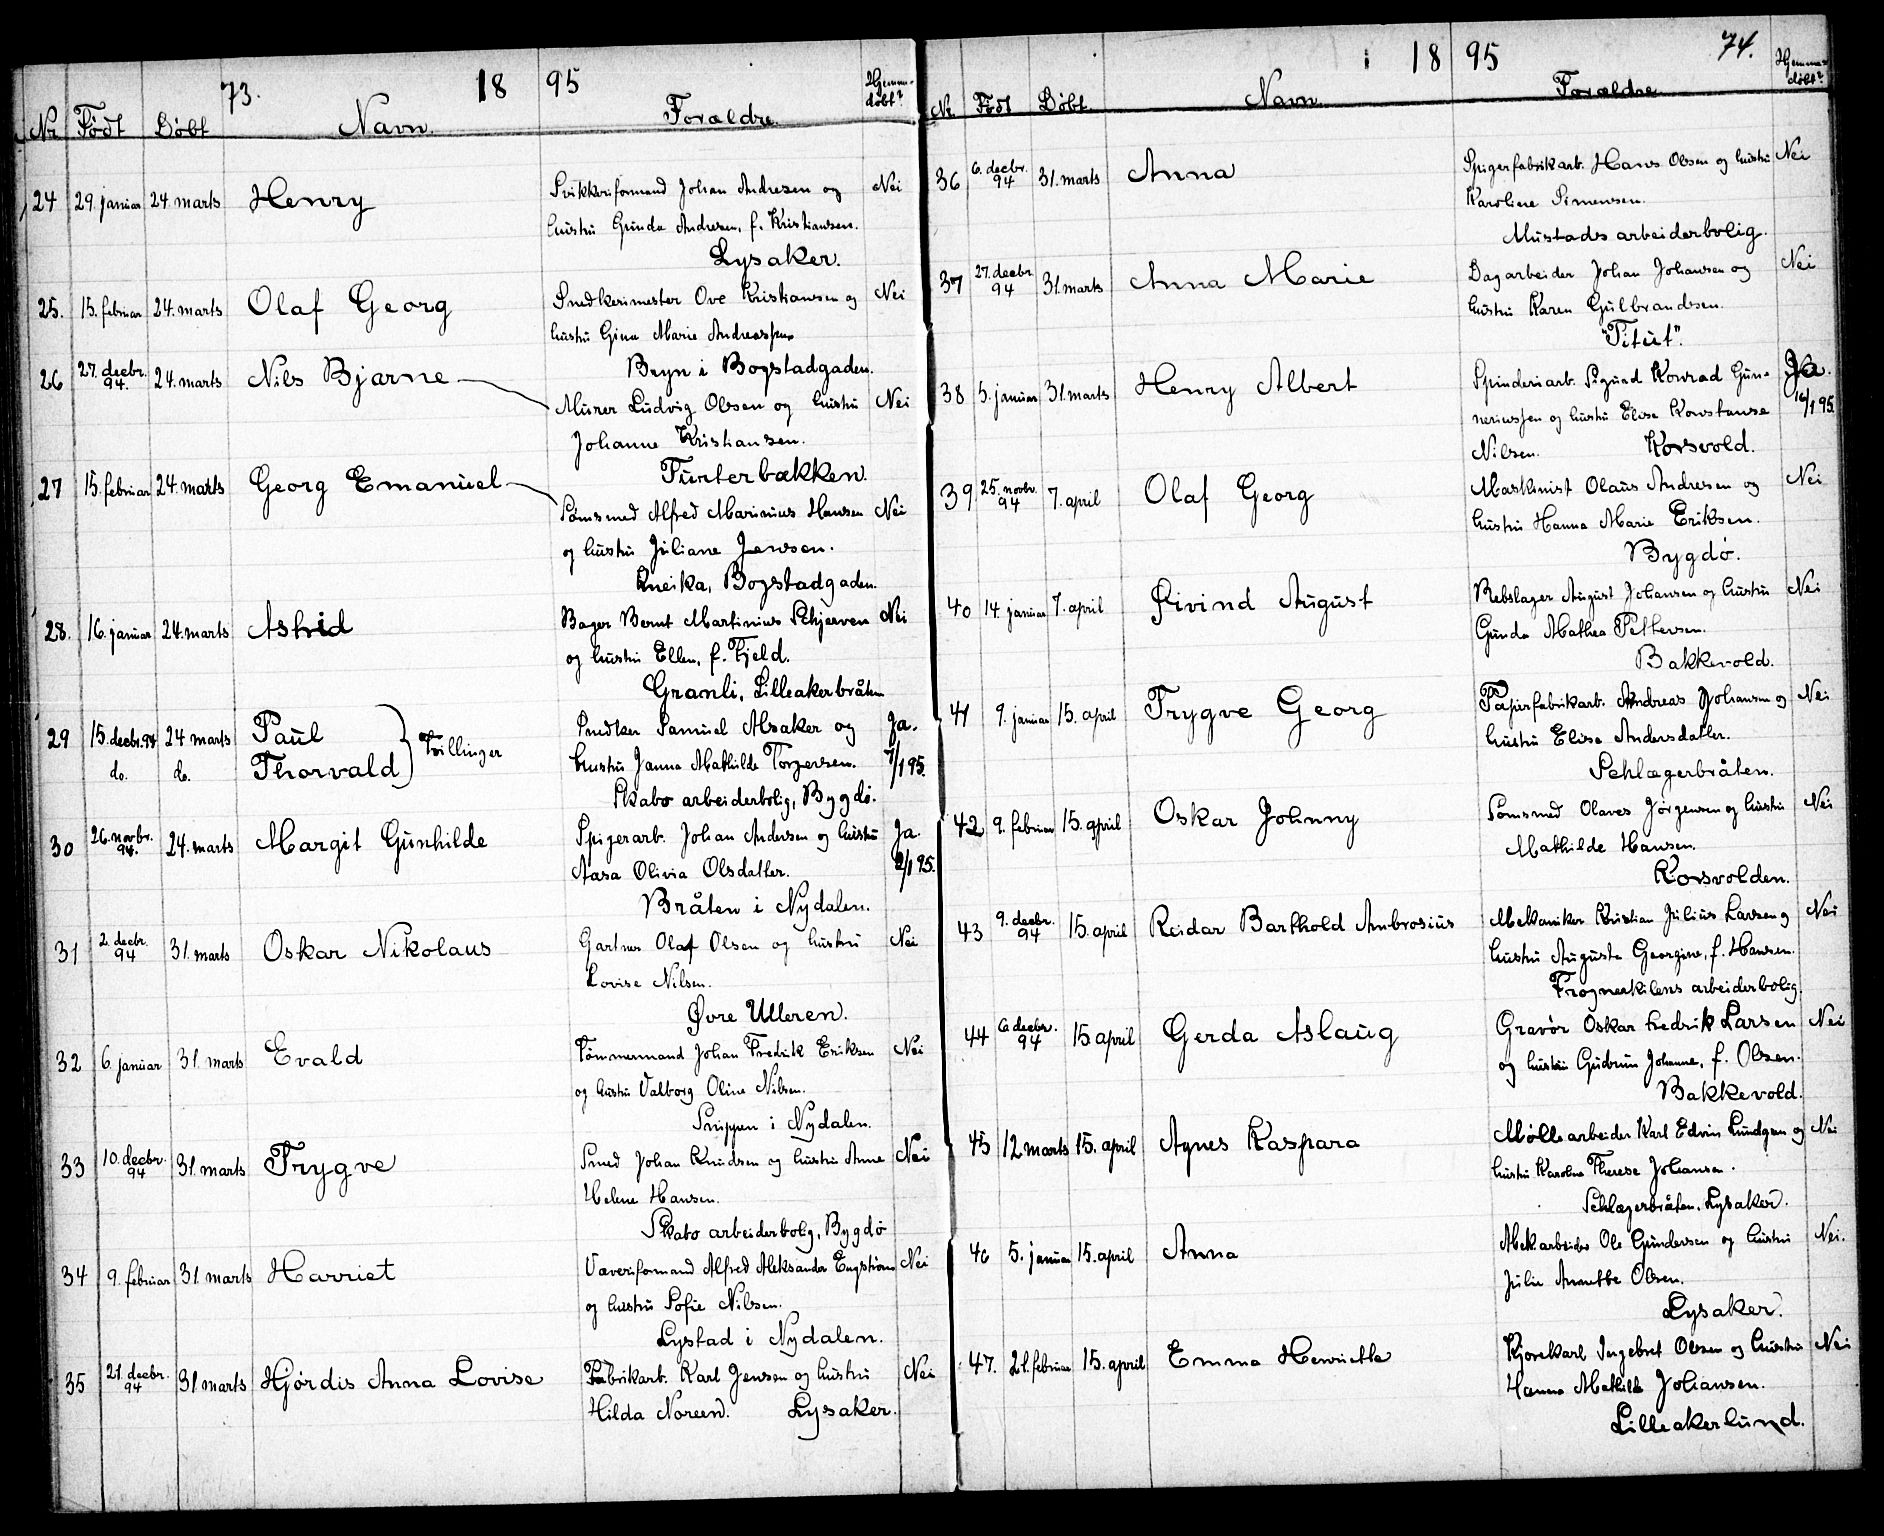 73. 18 95
Nr Født Døbt Navn. Forældre. Hjemme-
døbt?
24 29. januar 24. marts Henry formand Johan Andresen og Nei
hustru Gunda Andresen, f. Kristiansen.
Lysaker.
25. 15. februar 24. marts Olaf Georg Snedkermester Ove Kristiansen og Nei
hustru Gina Marie Andreassen
Bryn i Bogstadgaden.
26 27. decbr. 94. 24. marts Nils Bjarne Murer Ludvig Olsen og hustru Nei
Johanne Kristiansen.
Funterbækken.
27 15. februar 24. marts Georg Emanuel Sømsmed Alfred Marinius Hansen Nei
og hustru Juliane Jensen.
Kneika, Bogstadgaden.
28. 16. januar 24. marts Astrid Bager Bernt Martinius Schjerven Nei
og hustru Ellen, f. Fjeld.
Granli, Lilleakerbråten
29 15. decbr. 94 24 marts Paul Snedker Samuel Alsaker og Ja.
do. do. Thorvald } Tvillinger hustru Janna Mathilde Torgersen. 7/1 95.
Skabo arbeiderbolig, Bygdø.
30 26. novbr. 94. 24. marts Margit Gunhilde Spigerarb. Johan Andersen og hustru Ja.
Aasa Olivia Olsdatter. 2/1 95.
Bråten i Nydalen.
31 2. decbr. 94 31. marts Oskar Nikolaus Gartner Olaf Olsen og hustru Nei
Lovise Nilsen.
Øvre Ulleren.
32 6. januar 31. marts Evald Tømmermand Johan Fredrik Eriksen Nei
og hustru Valborg Oline Nilsen.
Snippen i Nydalen.
33 10. decbr. 94 31. marts Trygve Smed Johan Knudsen og hustru Anne Nei
Helene Hansen.
Skabo arbeiderbolig, Bygdø
34 9. februar 31. marts Harriet Væveriformand Alfred Aleksander Engstrøm Nei
og hustru Sofie Nilsen.
Lystad i Nydalen.
35 21. decbr. 94 31 marts Hjørdis Anna Lovise Fabrikarb. Karl Jensen og hustru Nei
Hilda Noreen. Lysaker.
18 95 74.
Nr. Født Døbt Navn. Forældre Hjemme-
døbt?
36 6. decbr. 94 31. marts Anna Spigerfabrikarb. Hans Olsen og hustru Nei
Karoline Simensen.
Mustads arbeiderbolig.
37 27. decbr. 94 31. marts Anna Marie Dagarbeider Johan Johansen og Nei
hustru Karen Gulbrandsen.
"Titut".
38 5. januar 31. marts Henry Albert Spinderiarb. Sigurd Konrad Gun- Ja.
neriussen og hustru Elise Konstanse 16/1 95.
Nilsen. Korsvold.
39 25. novbr. 94 7. april Olaf Georg Maskinist Olaus Andresen og Nei
hustru Hanna Marie Eriksen.
Bygdø.
40 14. januar 7. april Øivind August Rebslager August Johansen og hustru Nei
Gunda Mathea Pettersen.
Bakkevold.
41 9. januar 15. april Trygve Georg Papirfabrikarb. Andreas Johansen og Nei
hustru Elise Andersdatter.
Schlægerbråten.
42 9. februar 15. april Oskar Johnny Sømsmed Olaves Jørgensen og hustru Nei
Mathilde Hansen.
Korsvolden.
43 9. decbr. 94 15. april Reidar Barthold Ambrosius Mekaniker Kristian Julius Larsen og Nei
hustru Augusta Georgine, f. Hansen.
Frognerkilens arbeiderbolig.
44 6. decbr. 94 15. april Gerda Aslaug Gravør Oskar Fredrik Larsen Nei
og hustru Gudrun Johanne, f. Olsen.
Bakkevold.
45 12 marts 15. april Agnes Kaspara Møllearbeider Karl Edvin Lundgren og Nei
hustru Karoline Therese Johansen.
Schlægerbråten, Lysaker.
46 5. januar 15. april Anna Mek.arbeider Ole Gundersen og hustru Nei.
Julie Annette Olsen.
Lysaker.
47. 21. februar 15. april Emma Henriette Kjørekarl Ingebret Olsen og hustru Nei
Hanna Mathilde Johansen.
Lilleakerlund.